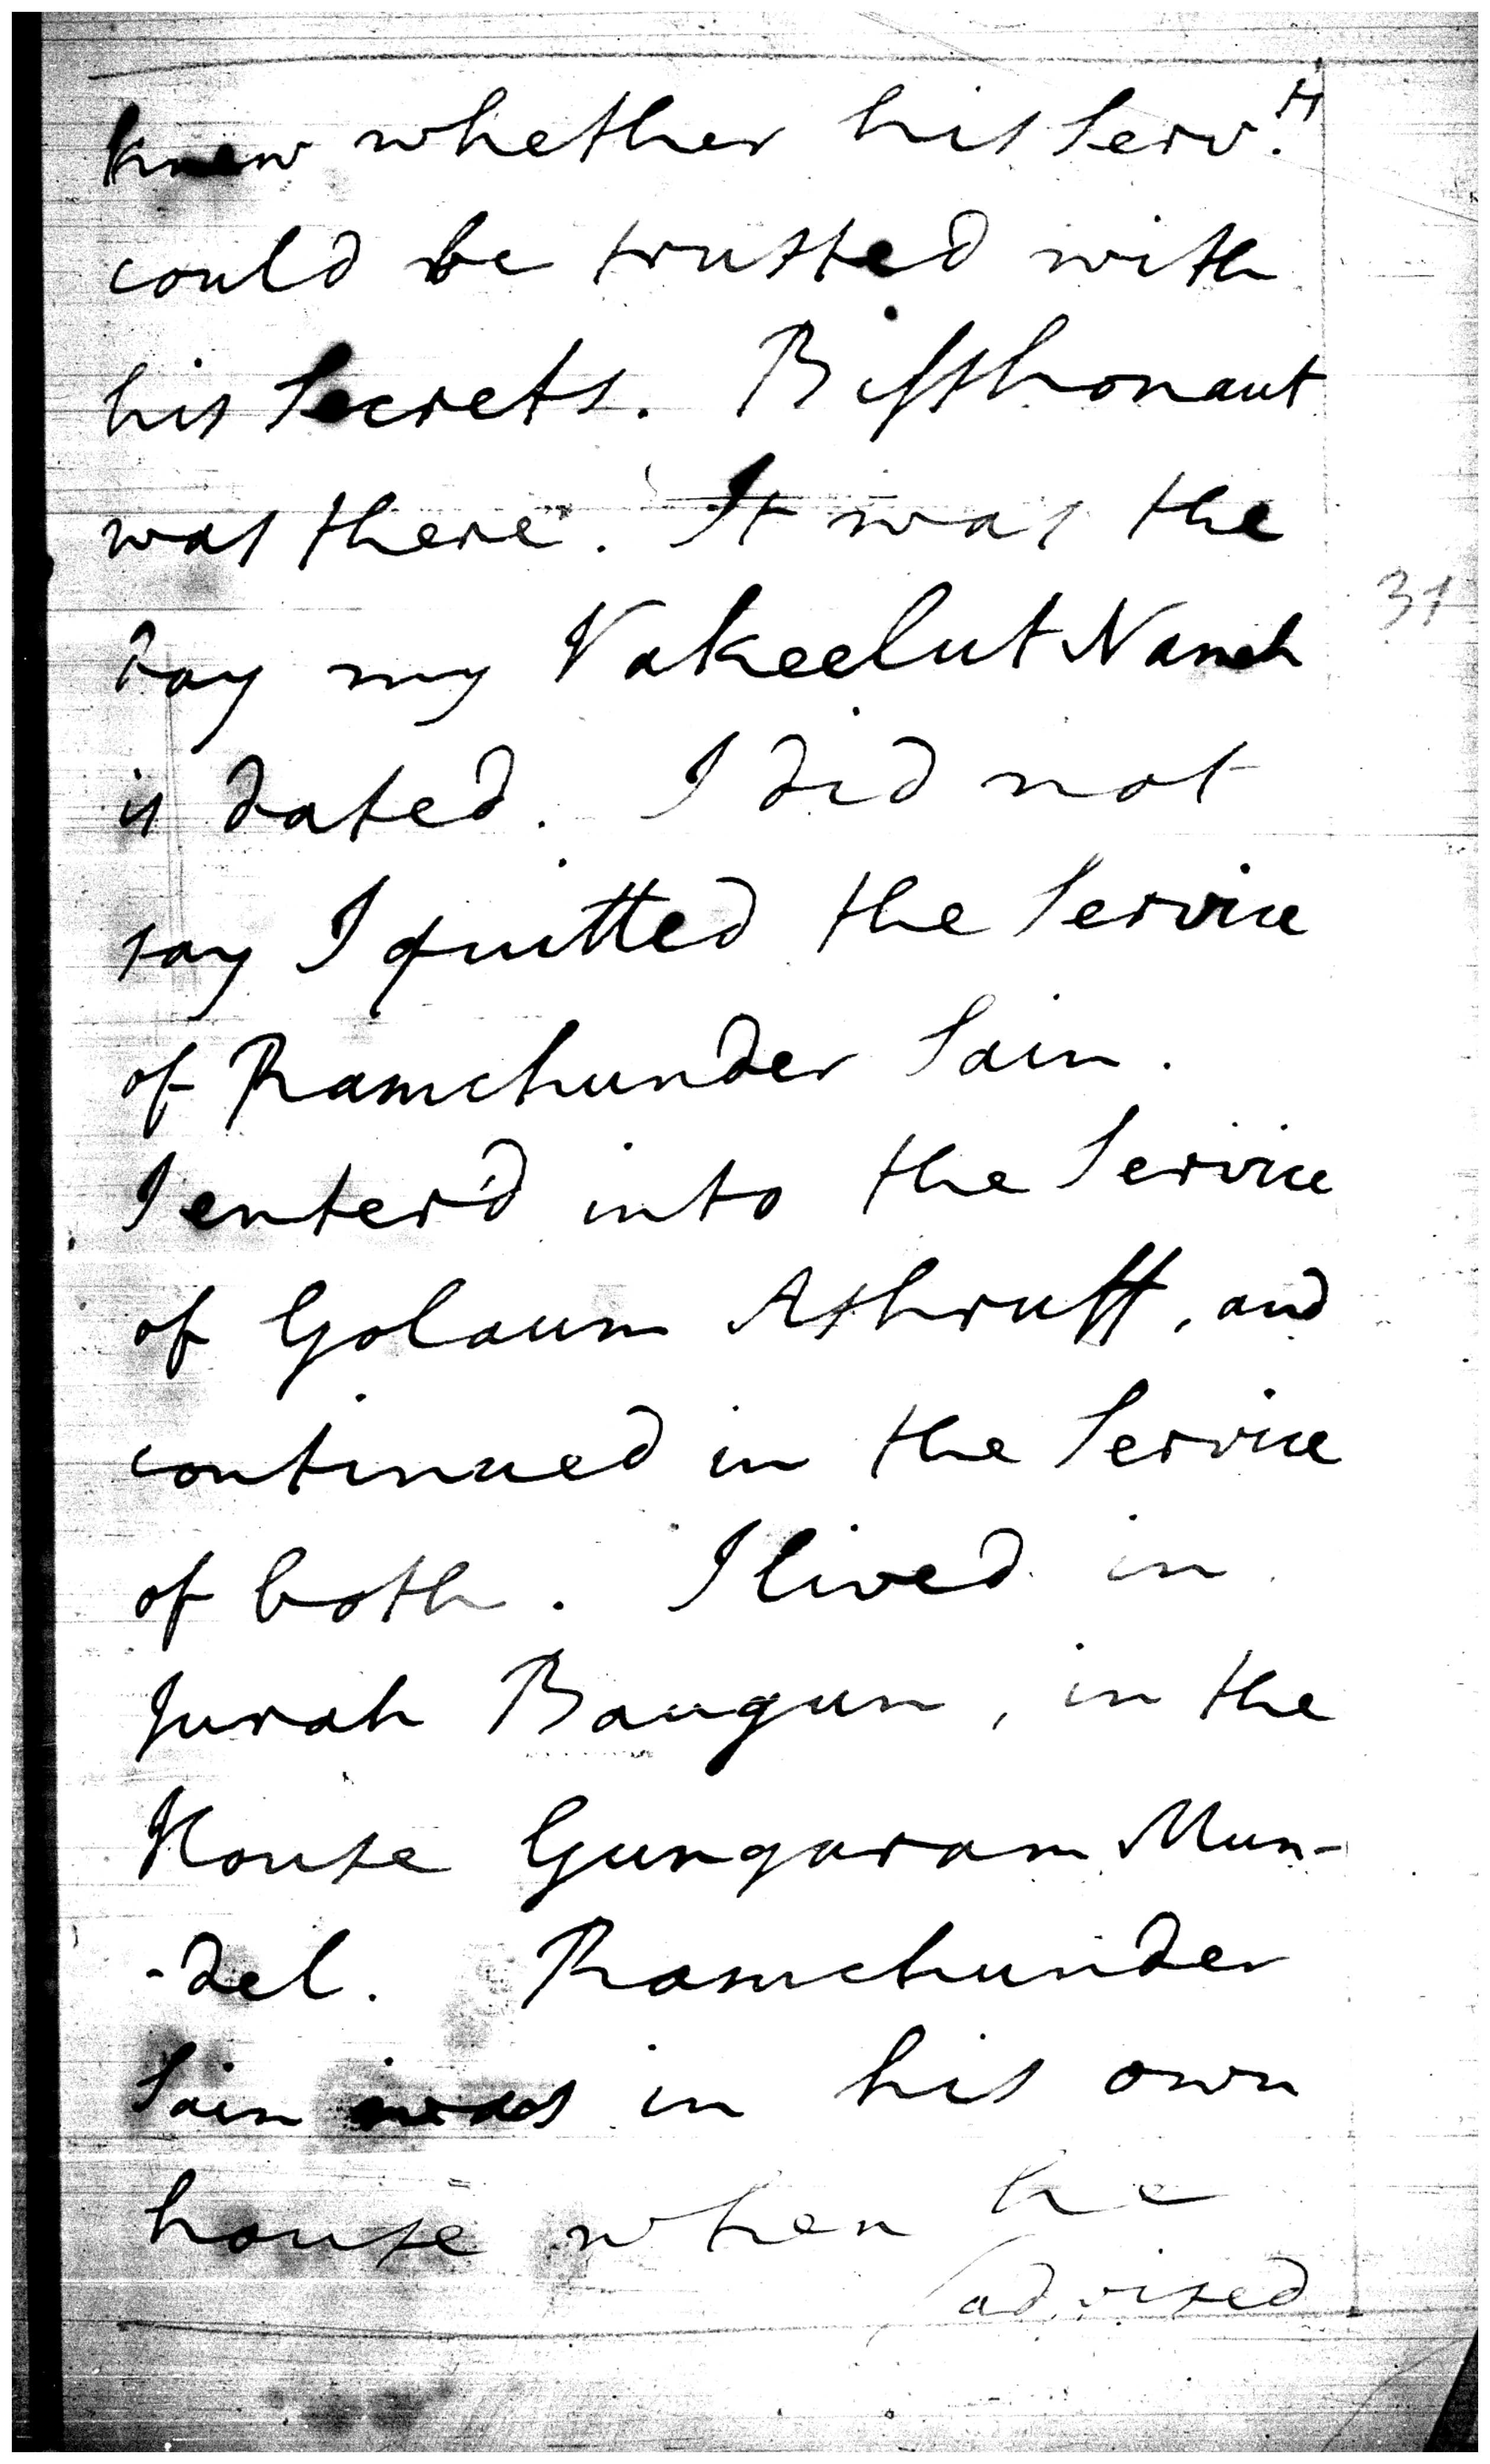 knew whether his Serv.ts
could be trusted with
his Secrets. Bisshonaut
was there. It was the
31
day my Vakeelut Nameh
is dated. I did not
say I quitted the Service
of Ramchunder Sain.
I enter'd into the Service
of Golaum Ashruff, and
continued in the Service
of both. I lived in
Jurah Baugun, in the
House Gungaram Mun-
-del. Ramchunder
Sain was in his own
house when he
advised